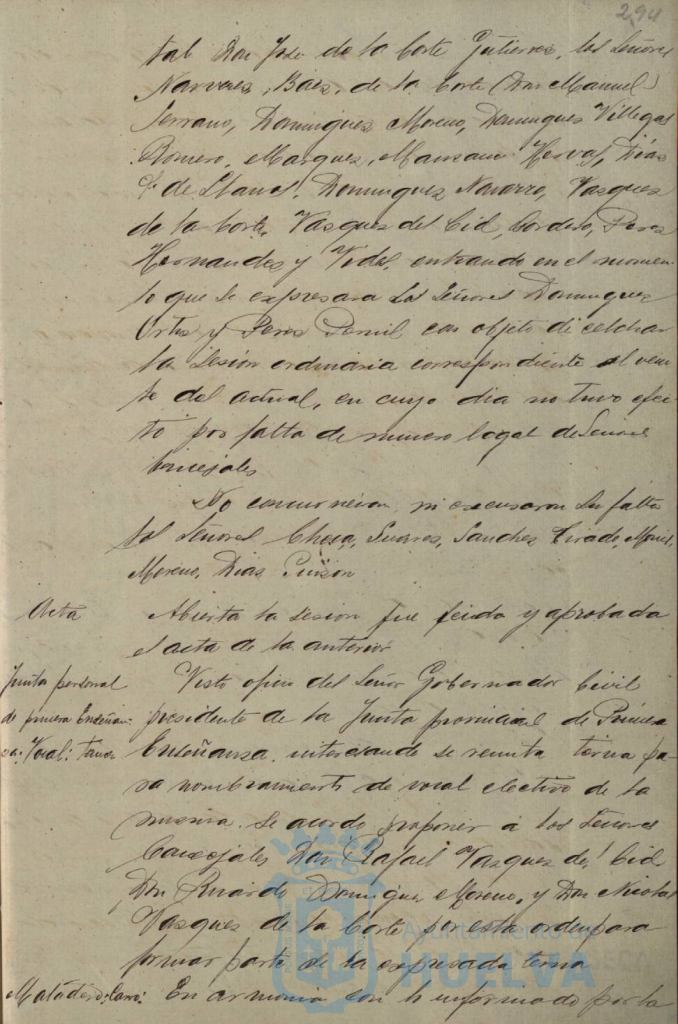 294
tal Don José de la Corte Gutierrez, los Señores
Narvaez, Baez, de la Corte (Don Manuel)
Serrano, Dominguez Moreno, Dominguez Villegas
Romero, Marquez, Manzano Hervas, Dias
F. de Llanos, Dominguez Navarro, Vazquez
de la Corte, Vazquez del Cid, Cordero, Perez
Hernandez y Vides, entrando en el momen-
to que se expresara los Señores Dominguez
Ortiz y Perez con objeto de celebrar
la sesión ordinaria correspondiente al vein-
te del actual, en cuyo dia no tuvo efec-
to por falta de numero legal de Señores
Concejales
No concurrieron, ni excusaron su falta
los Señores Checa, Suarez, Sanchez Tirado,
Moreno, Dias Pinzon
Acta Abierta la sesion fue leida y aprobada
el acta de la anterior
Junta personal Visto oficio del Señor Gobernador Civil
de primera Enseñan- presidente de la Junta provincial de Primera
za: Vocal: terna Enseñanza, interesando se remita terna pa-
ra nombramiento de vocal electivo de la
misma. Se acordó proponer á los Señores
Concejales Don Rafael Vazquez del Cid
Don Ricardo Dominguez Moreno, y Don Nicolas
Vazquez de la Corte por este orden para
formar parte de la expresada terna
Matadero: Carro: En armonia con lo informado por la
Ayuntamiento de
HUELVA